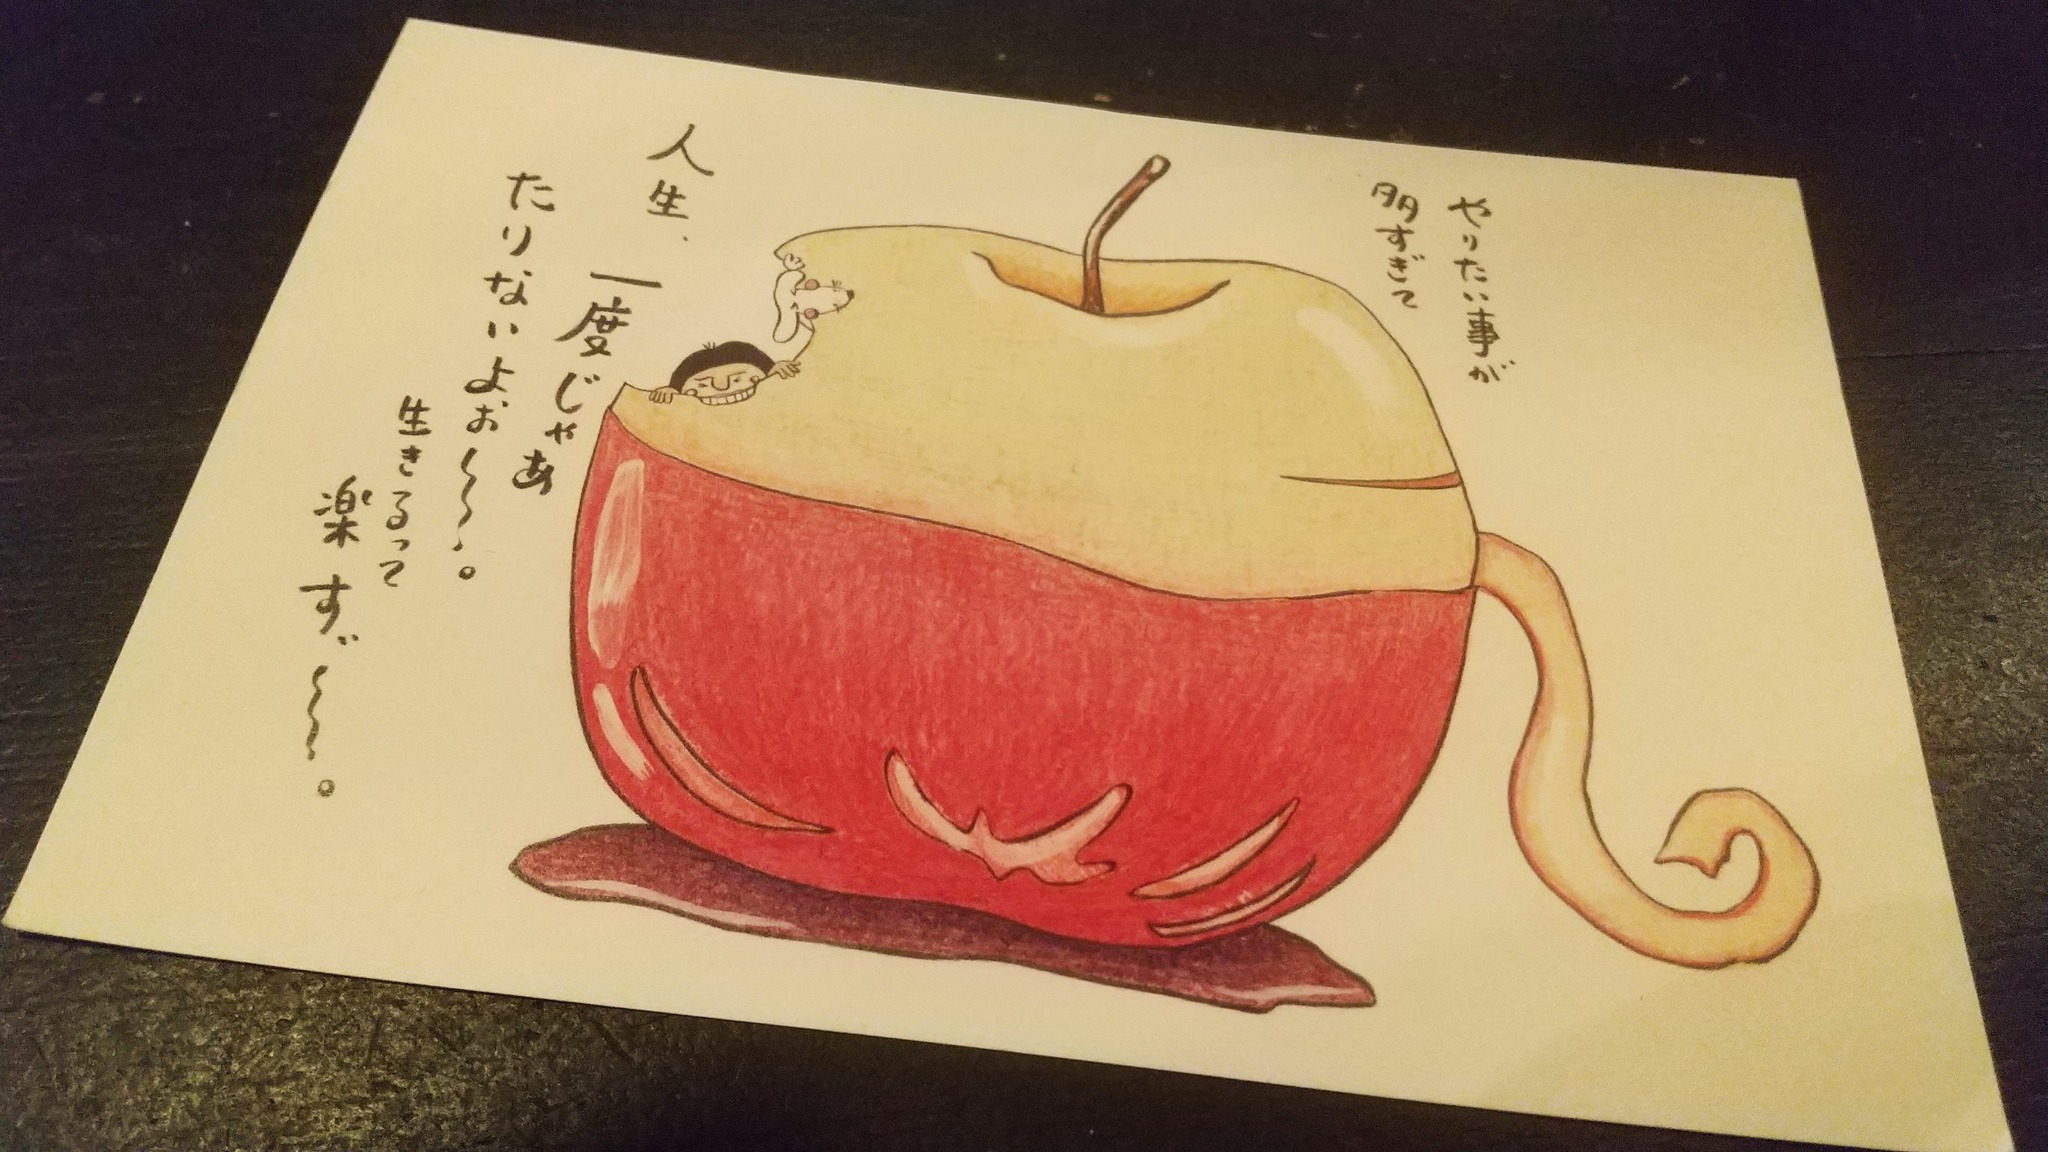 やりたい事が
多すぎて
人生、
一度じゃあ
たりないよぉ〜〜。
生きるって
楽すぃ〜〜。